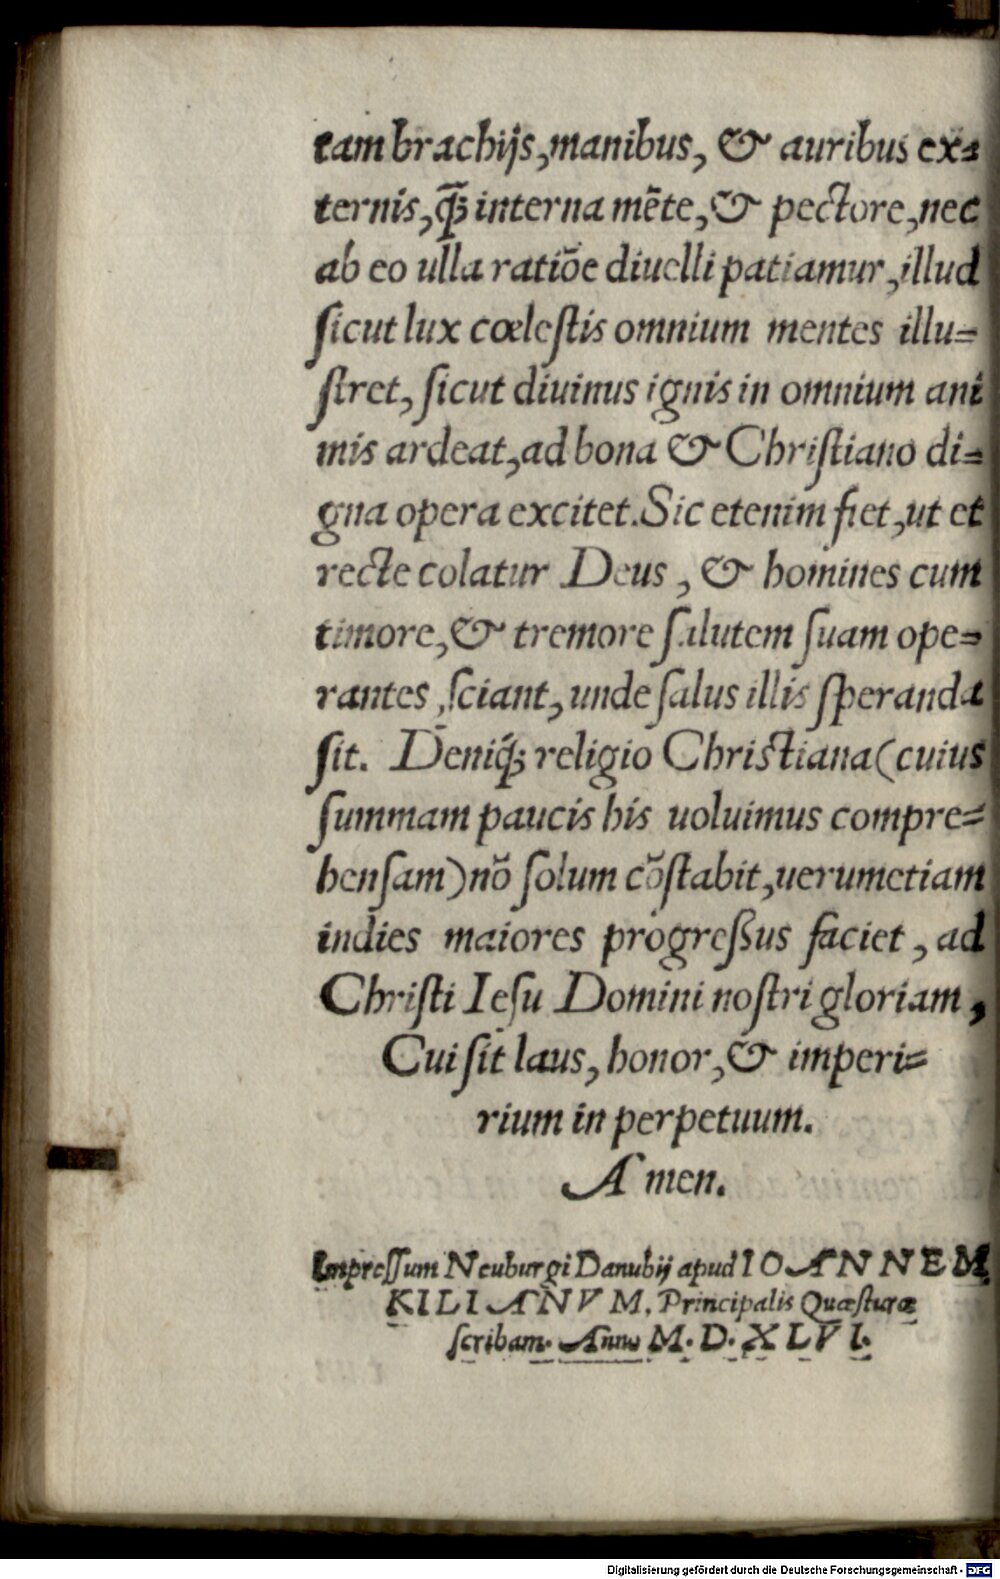 tam brachijs, manibus, & auribus ex=
ternis, q̃ꝫ interna mẽte, & pectore, nec
ab eo ulla ratiõe diuelli patiamur, illud
ſicut lux cœleſtis omnium mentes illu=
ſtret, ſicut diuinus ignis in omnium ani
mis ardeat, ad bona & Chriſtiano di=
gna opera excitet. Sic etenim fiet, ut et
recte colatur Deus, & homines cum
timore, & tremore ſalutem ſuam ope=
rantes, ſciant, unde ſalus illis ſperanda
ſit. Deniq́ꝫ religio Chriſtiana (cuius
ſummam paucis his uoluimus compre=
henſam) nõ ſolum cõſtabit, uerumetiam
indies maiores progreſſus faciet, ad
Chriſti Ieſu Domini noſtri gloriam,
Cui ſit laus, honor, & imperi=
rium in perpetuum.
Amen.
Impreſſum Neuburgi Danubij apud IOANNEM
KILIANVM, Principalis Quæſturæ
ſcribam. Anno M. D. XLVI.
Digitalisierung gefördert durch die Deutsche Forschungsgemeinschaft - DFG